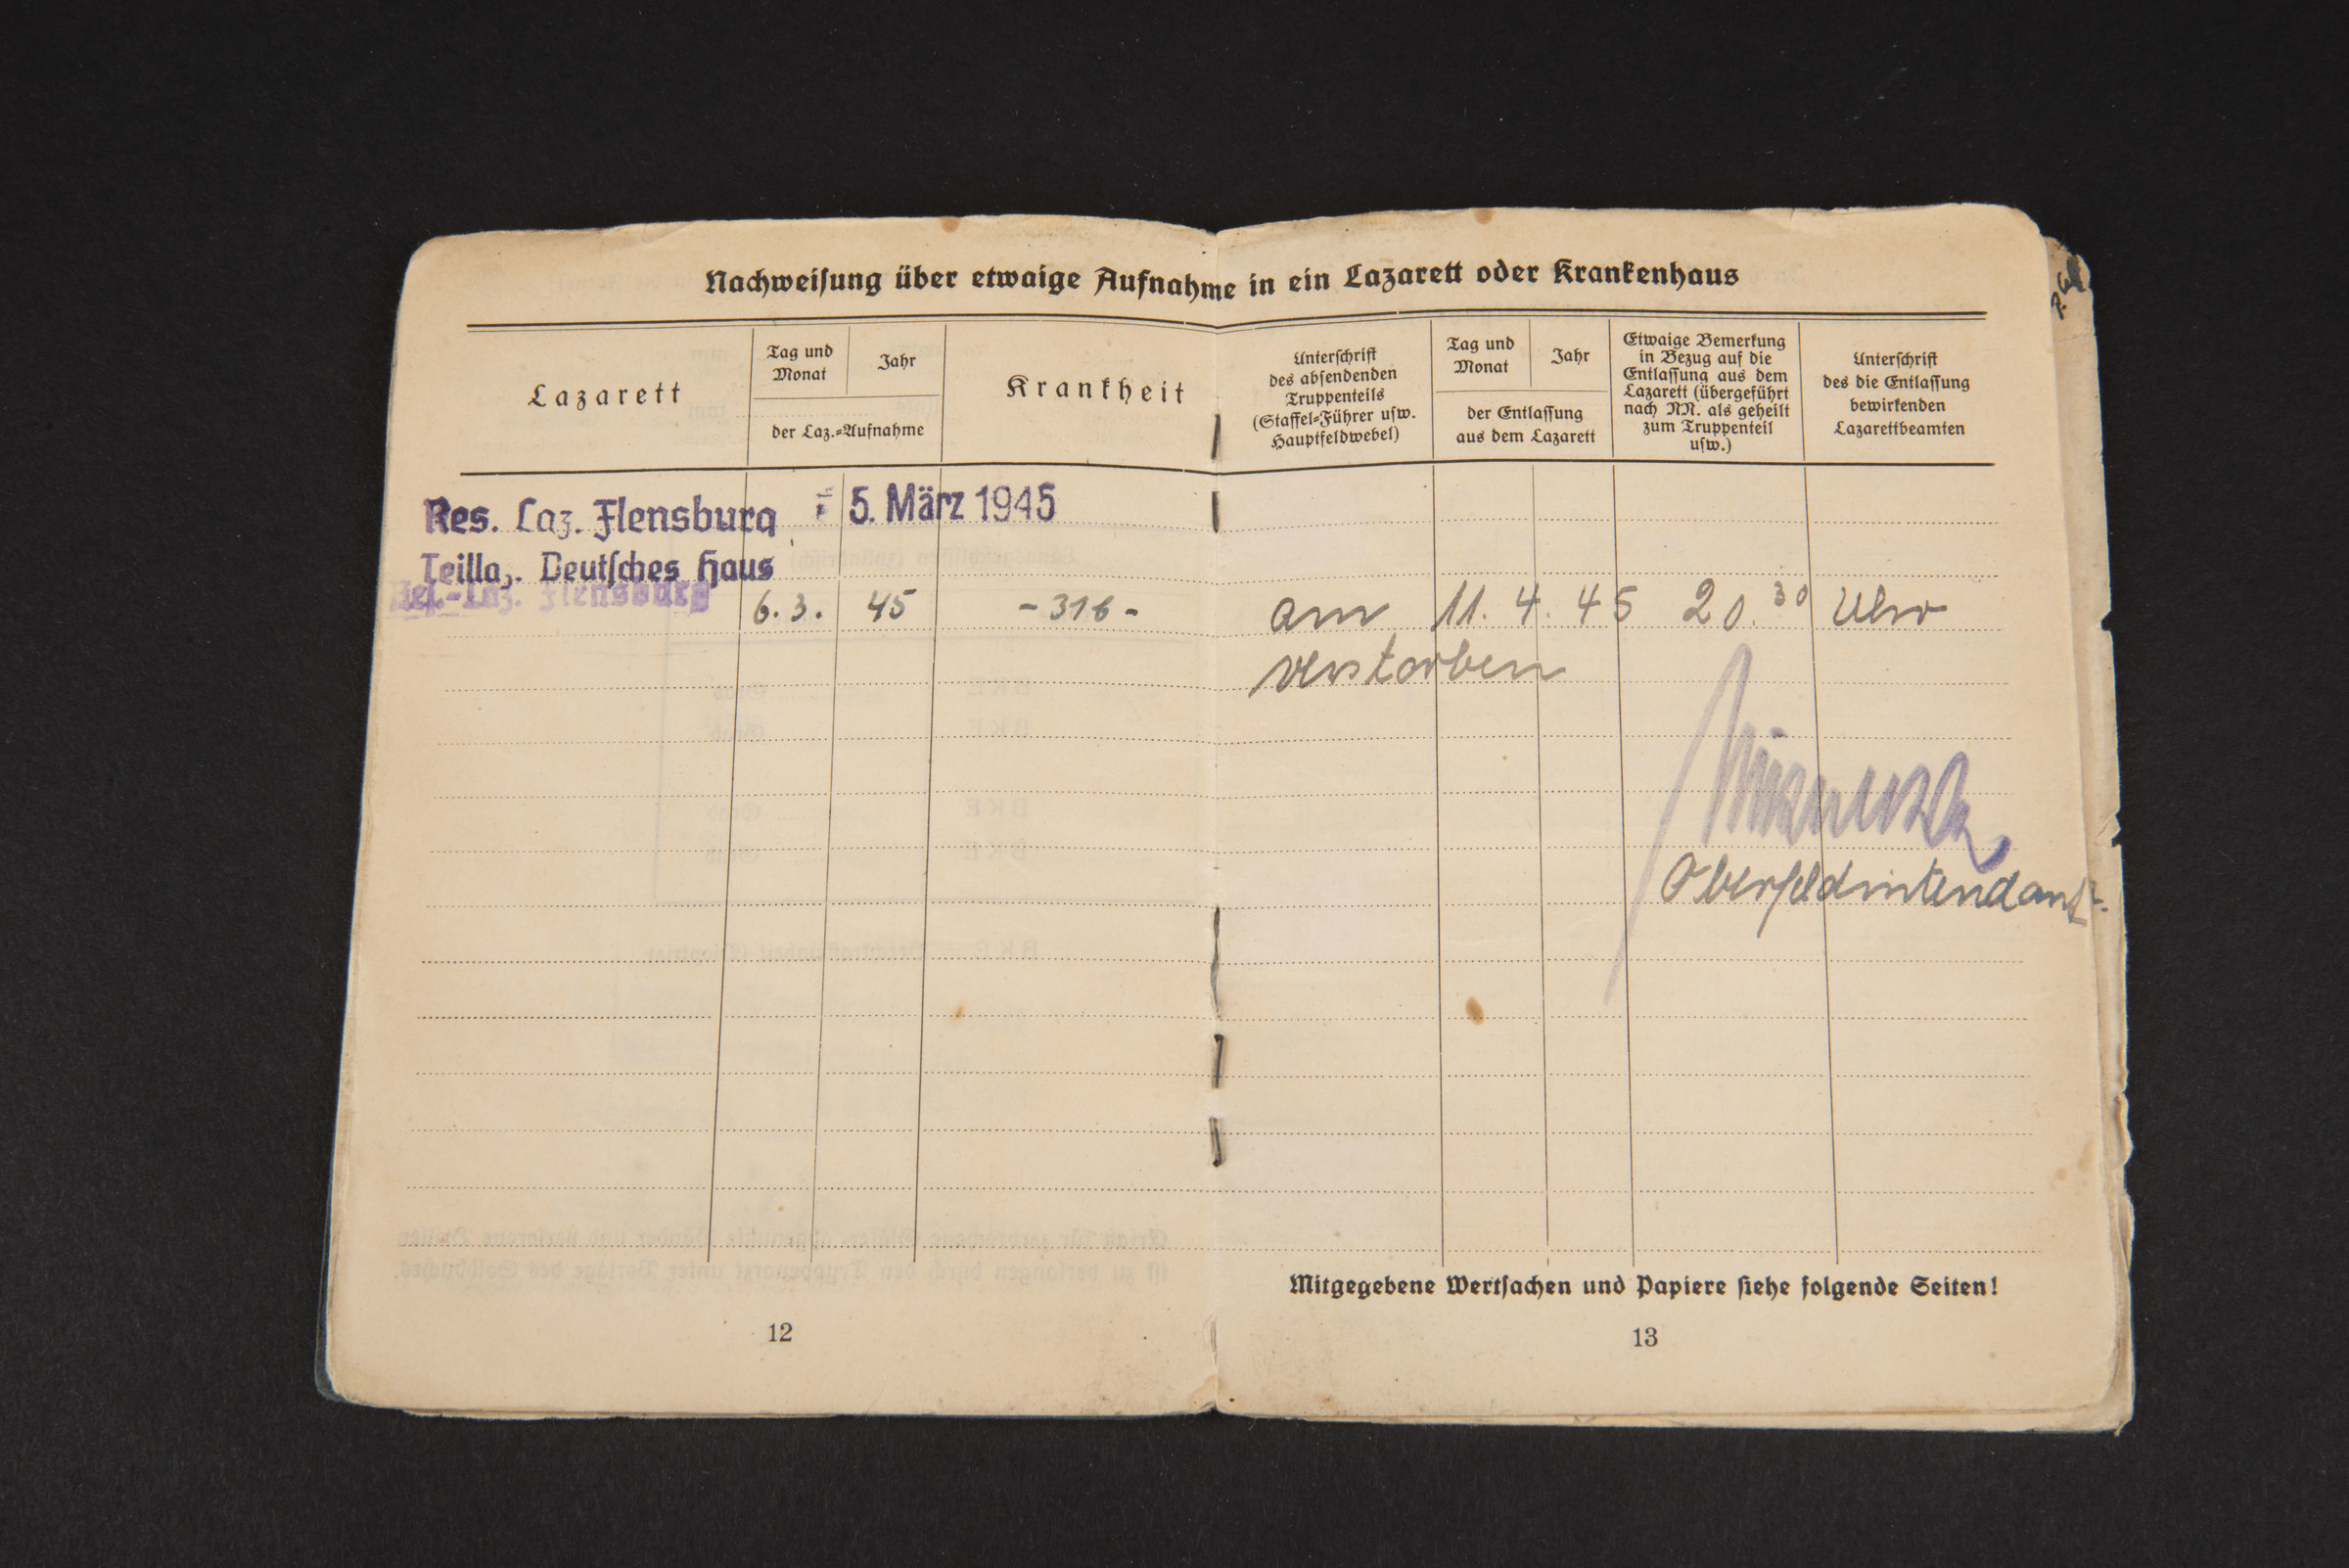 Nachweisung über etwaige Aufnahme in ein Lazarett oder Krankenhaus
Lazarett
Tag und
Monat
Jahr
der Laz.=Aufnahme
Krankheit
Unterschrift
des absendenden
Truppenteils
(Staffel=Führer usw.
Hauptfeldwebel)
Tag und
Monat
Jahr
der Entlassung
aus dem Lazarett
Etwaige Bemerkung
in Bezug auf die
Entlassung aus dem
Lazarett (übergeführt
nach NN. als geheilt
zum Truppenteil
usw.)
Unterschrift
des die Entlassung
bewirkenden
Lazarettbeamten
Res. Laz. Flensburg 5. März 1945
Teillaz. Deutsches Haus
Res.-Laz. Flensburg 6. 3. 45 - 316 - am 11. 4. 45 20.30 Uhr
verstorben
Oberfeldintendant.
Mitgegebene Wertsachen und Papiere siehe folgende Seiten!
12
13